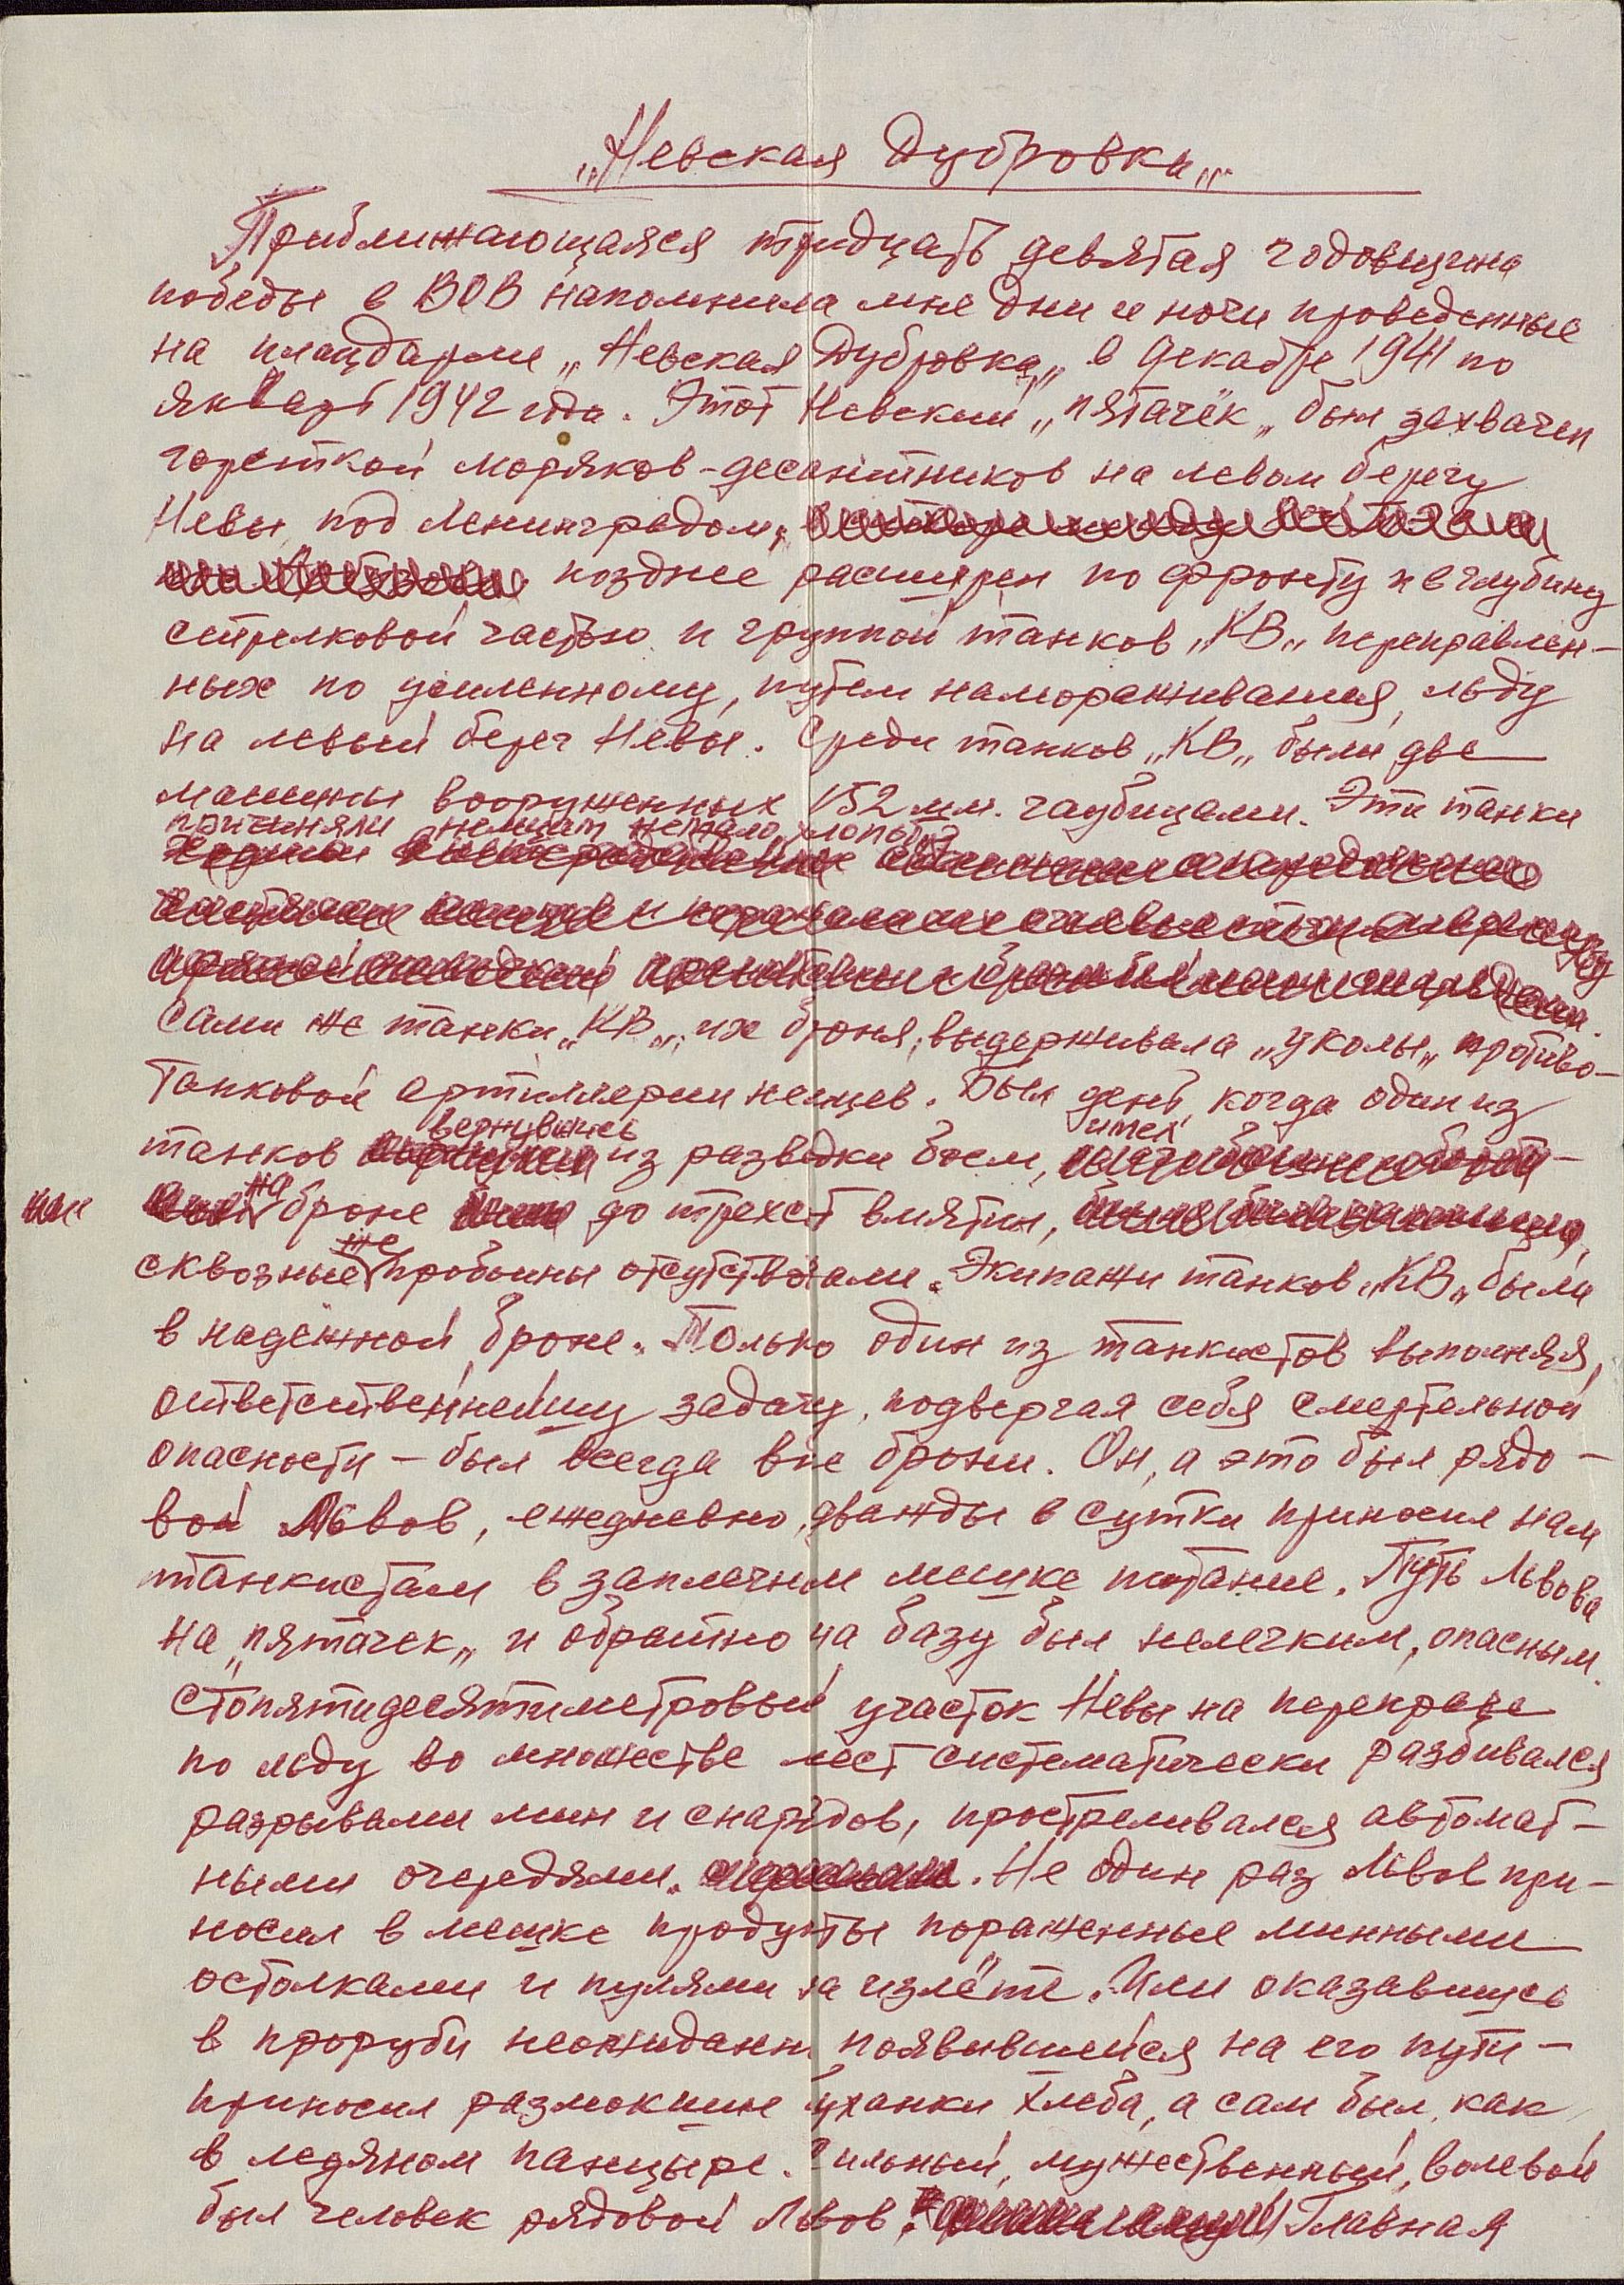 „Невская Дубровка„
Приближающаяся тридцать девятая годовщина
победы в ВОВ напомнила мне дни и ночи проведенные
на плацдарме „Невская Дубровка„ в декабре 1941 по
январь 1942 года. Этот Невский „пятачёк„ был захвачен
горсткой моряков-десантников на левом берегу
Невы под Ленинградом,
позднее расширен по фронту и в глубину
стрелковой частью и группой танков „КВ„ переправлен-
ных по усиленному, путем намораживания, льду
на левый берег Невы. Среди танков „КВ„ были две
машины вооруженных 152 мм. гаубицами. Эти танки
причиняли немцам немало хлопот
сами же танки „КВ„, их броня, выдерживала „уколы„ противо-
танковой артиллерии немцев. Был день, когда один из
танков вернувшись из разведки боем, имел
на броне до трехсот вмятин,
сквозные же пробоины отсутствовали. Экипажи танков „КВ„ были
в надежной броне. Только один из танкистов выполняя,
ответственнейшую задачу, подвергая себя смертельной
опасности – был всегда вне брони. Он, а это был рядо-
вой Львов, ежедневно, дважды в сутки приносил нам
танкистам в заплечном мешке питание. Путь Львова
на „пятачек„ и обратно на базу был нелегким, опасным.
Стопятидесятиметровый участок Невы на переправе
по льду во множестве мест систематически разбивался
разрывами мин и снарядов, простреливался автомат-
ными очередями. Не один раз Львов при-
носил в мешке продукты пораженные минными
осколками и пулями на излёте. Или оказавшись
в проруби неожиданно появившейся на его пути –
приносил размокшие буханки хлеба, а сам был, как
в ледяном панцыре. Сильный, мужественный, волевой
был человек рядовой Львов. Главная